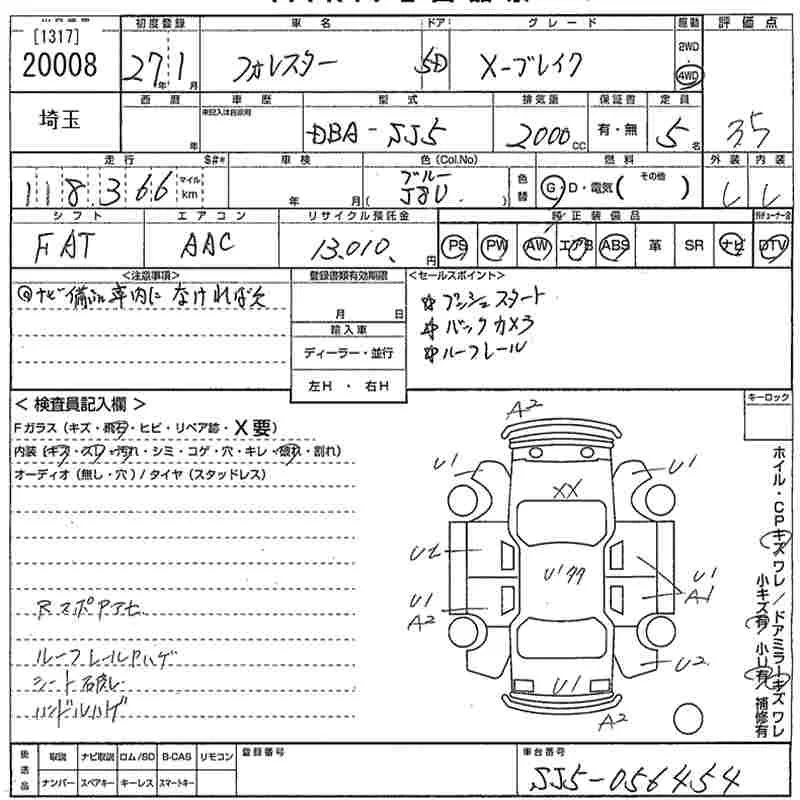 [1317]
20008
初度登録
27年 1月
車名
フォレスター
ドア
5D
グレード
X-ブレイク
駆動
2WD
・
4WD
評価点
3.5
埼玉
西暦
年
車歴
未記入は自家用
型式
DBA-SJ5
排気量
2000 CC
保証書
有・無
定員
5名
走行
118,366
マイル
km
S#*
車検
年 月
色(Col.No)
ブルー
( J8U )
色替
燃料
G・D・電気( その他 )
外装
内装
シフト
FAT
エアコン
AAC
リサイクル預託金
13,010 円
純正装備品
PS PW AW エアB ABS 革 SR ナビ DTV
<注意事項>
ナビ備品車内になければ欠
登録書類有効期限
月 日
輸入車
ディーラー・並行
左H ・ 右H
<セールスポイント>
プッシュスタート
バックカメラ
ルーフレール
< 検査員記入欄 >
Fガラス(キズ・飛石・ヒビ・リペア跡・X要)
内装(キズ・スレ・汚れ・シミ・コゲ・穴・キレ・擦れ・割れ)
オーディオ(無し・穴)/タイヤ(スタッドレス)
Rスポアセ
ルーフレールハゲ
シート
ハンドルハゲ
A2
U1
U1
XX
U2
U1
U1
A1
A2
U2
U1
A2
キーロック
ホイル・CPキズワレ/ドアミラーキズワレ
小キズ有 小U有 補修有
後送品
取説 ナビ取説 ロム/SD B-CAS リモコン
ナンバー スペアキー キーレス スマートキー
登録番号
車台番号
SJ5-056454